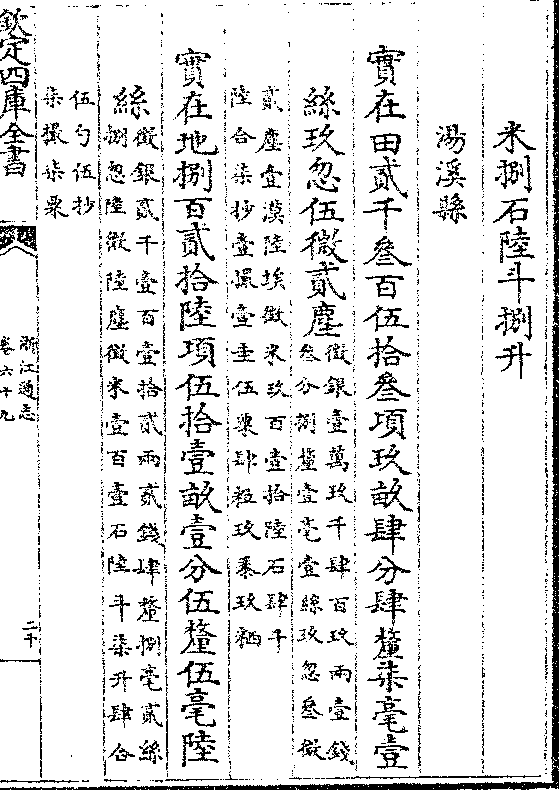 米捌石陸斗捌升
湯溪縣
實在田貳千叄百伍拾叄頃玖畝肆分肆釐柒毫壹
絲玖忽伍微貳塵
徵銀壹萬玖千肆百玖兩壹錢
叄分捌釐壹毫壹絲玖忽叄微
貳塵壹漠陸埃徵米玖百壹拾陸石肆斗
陸合柒抄壹撮壹圭伍粟肆粒玖黍玖粞
實在地捌百貳拾陸頃伍拾壹畝壹分伍釐伍毫陸
絲
徵銀貳千壹百壹拾貳兩貳錢肆釐捌毫貳絲
捌忽陸微陸塵徵米壹百壹石陸斗柒升肆合
伍勺伍抄
柒撮柒粟
欽定四庫全書
浙江通志
卷六十九
二十